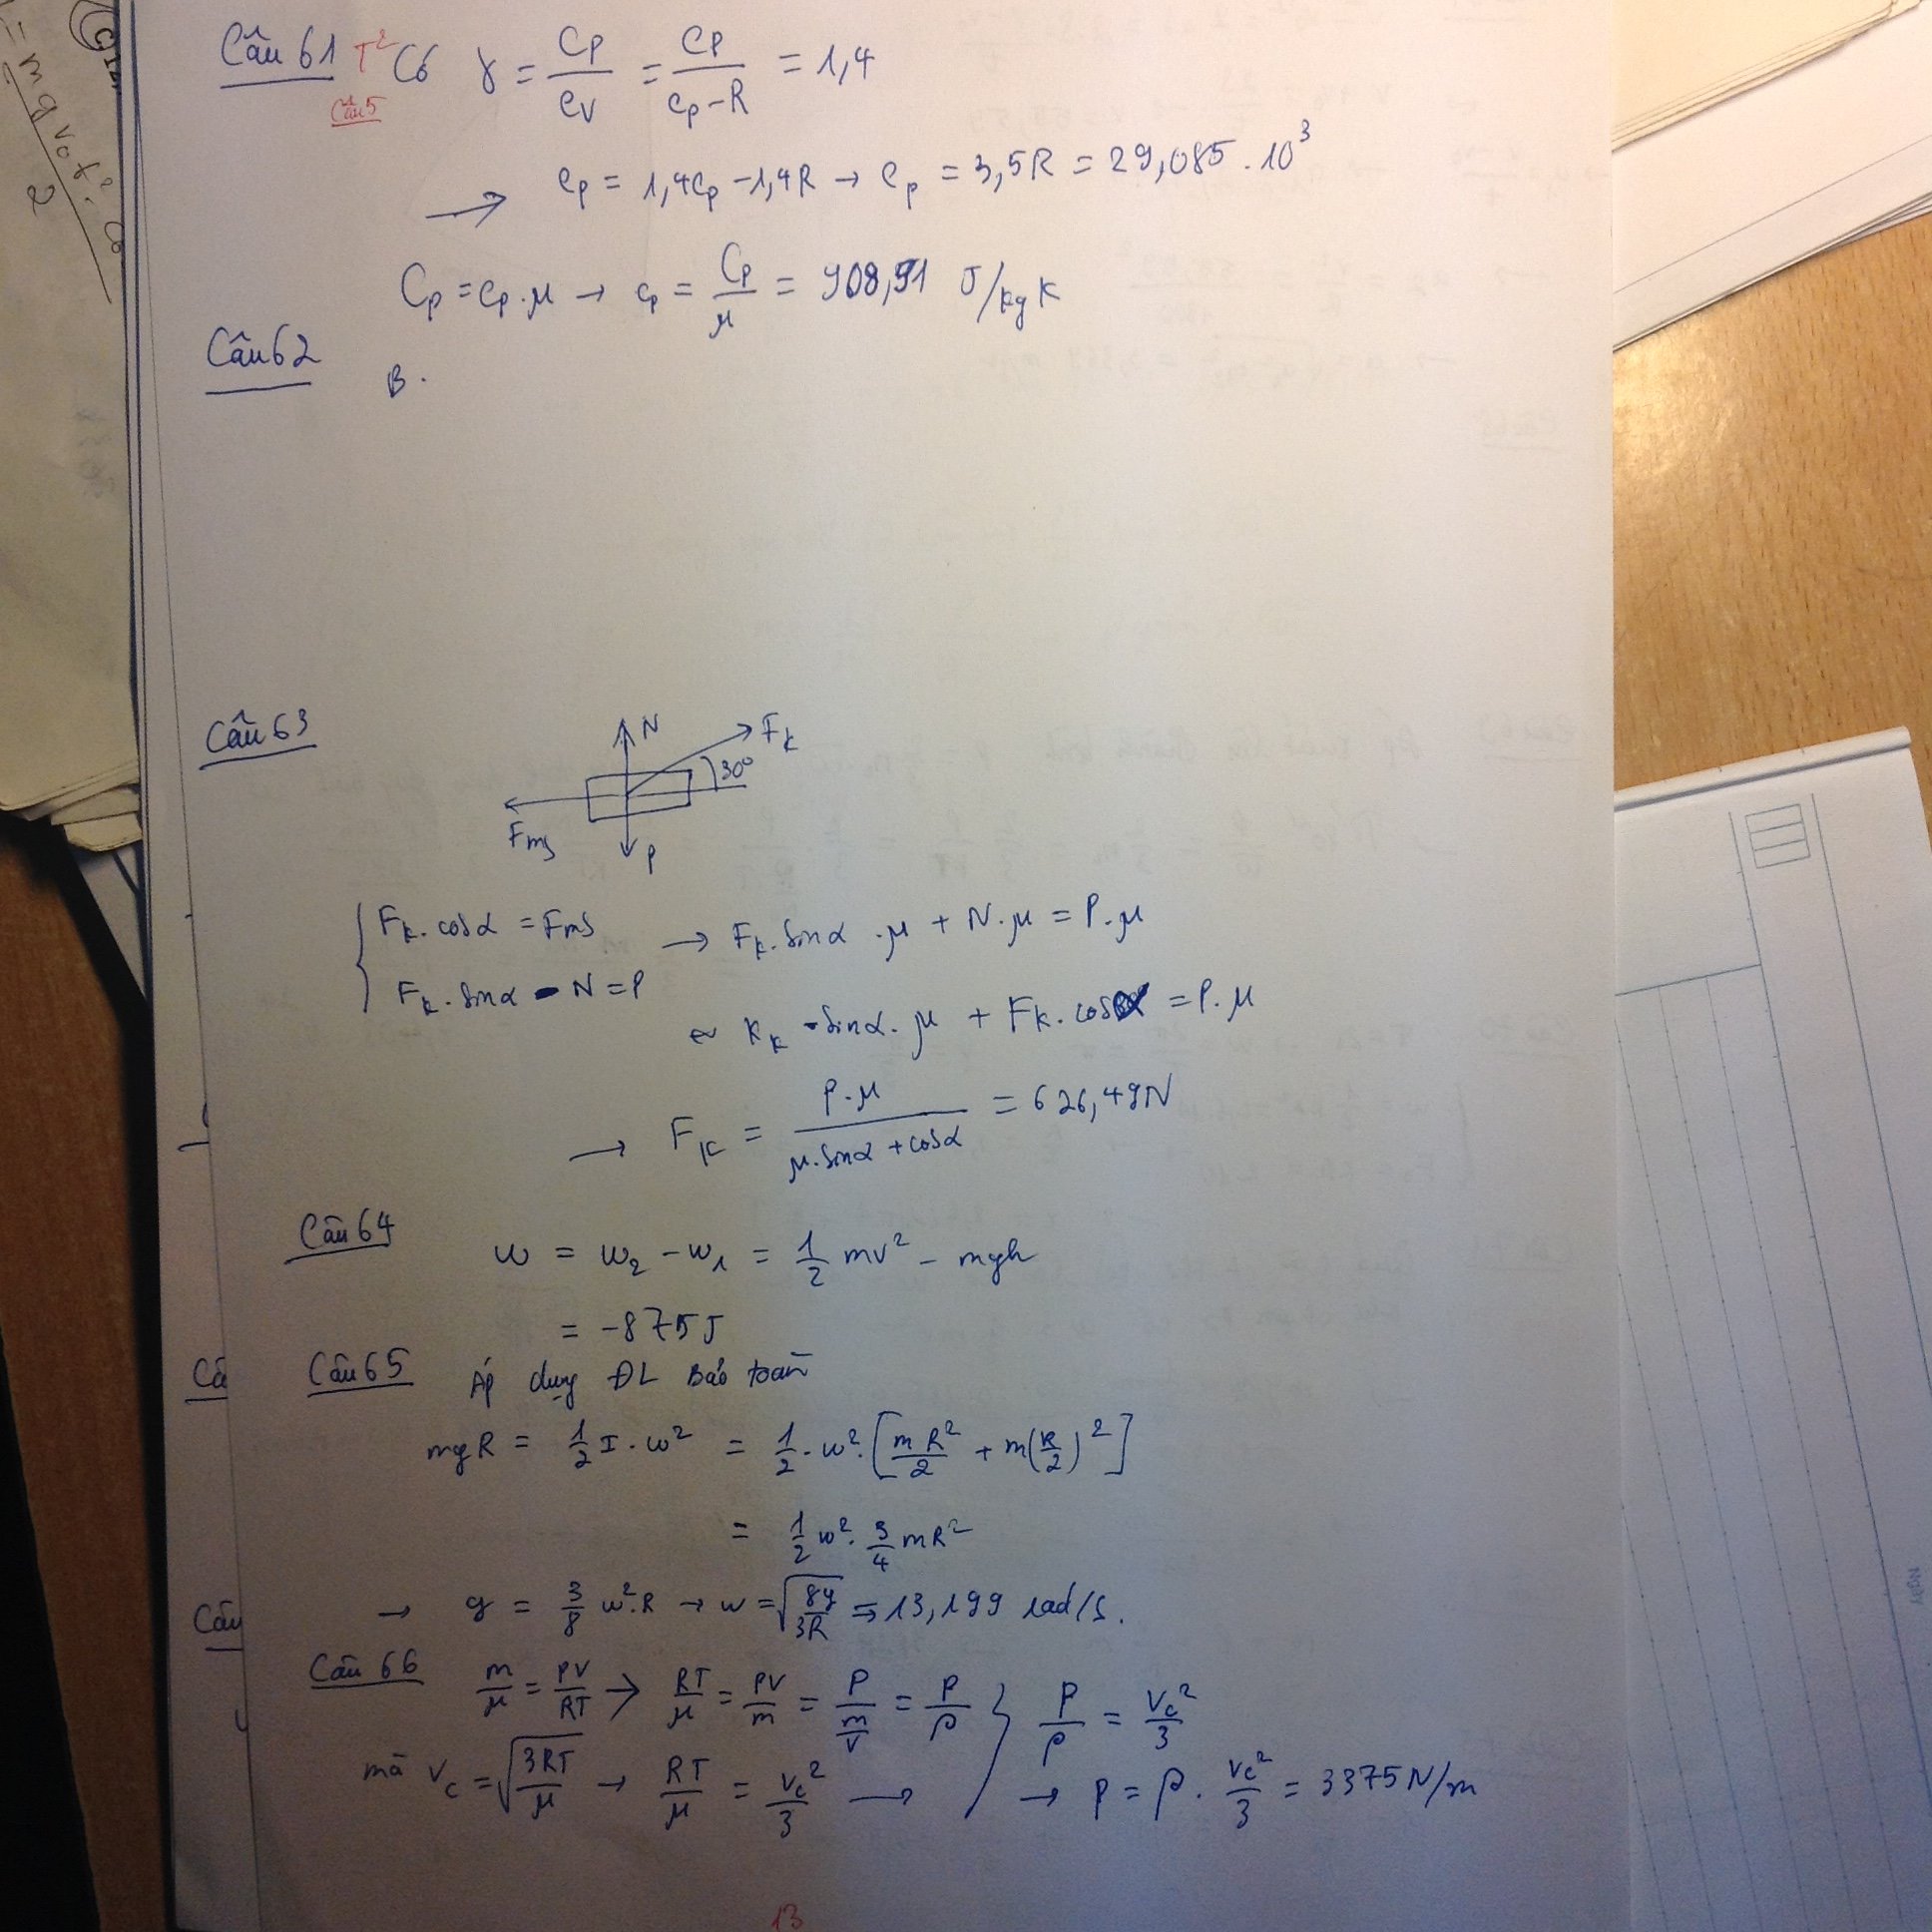 Câu 61 T² Có γ = Cp/Cv = Cp/(Cp-R) = 1,4
Câu 5
→ Cp = 1,4Cp - 1,4R → Cp = 3,5R = 29,085.10³
Cp = cp.μ → cp = Cp/μ = 908,91 J/kgK
Câu 62
B.
Câu 63
N
Fk
30°
Fms
P
{ Fk.cosα = Fms → Fk.sinα.μ + N.μ = P.μ
Fk.sinα - N = P
kk sinα.μ + Fk.cosα = P.μ
→ Fk = P.μ/(μ.sinα + cosα) = 626,49N
Câu 64
w = w₂ - w₁ = 1/2 mv² - mgh
= -875J
Câu 65 Áp dụng ĐL Bảo toàn
mgR = 1/2 I.w² = 1/2.w².[mR²/2 + m(R/2)²]
= 1/2 w².3/4 mR²
→ g = 3/8 w².R → w = √(8g/3R) = 13,199 rad/s.
Câu 66 m/μ = PV/RT → RT/μ = PV/m = P/(m/V) = P/ρ } P/ρ = Vc²/3
mà Vc = √(3RT/μ) → RT/μ = Vc²/3 → → P = ρ.Vc²/3 = 3375N/m
13
= mg v₀t². Co
2
Câ
Câu